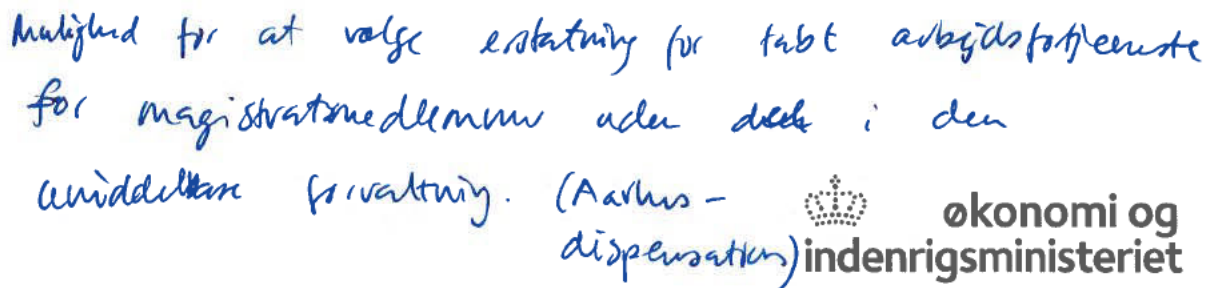 Mulighed for at vælge erstatning for tabt arbejdsfortjeneste
for magistratsmedlemmer uden deel i den
umiddelbare forvaltning. (Aarhus-
dispensation)
økonomi og
indenrigsministeriet